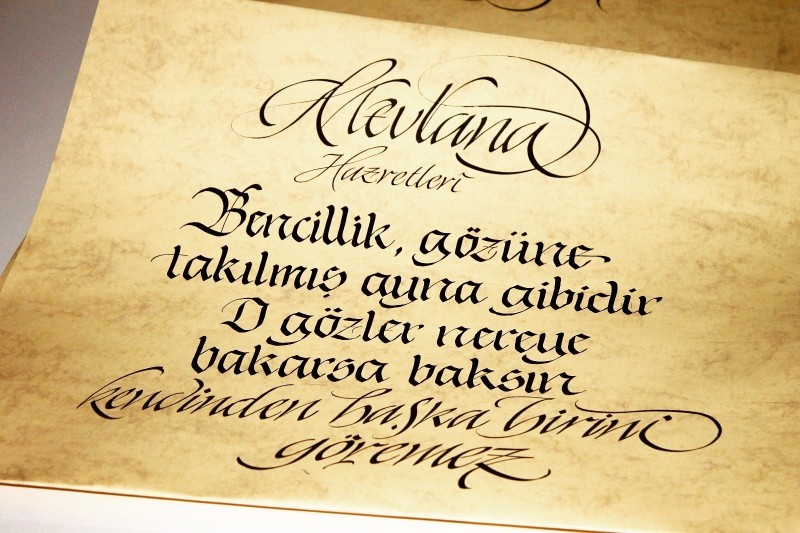 Mevlana
Hazretleri
Bencillik, gözüne
takılmış ayna gibidir
O gözler nereye
bakarsa baksın
kendinden başka birini
göremez